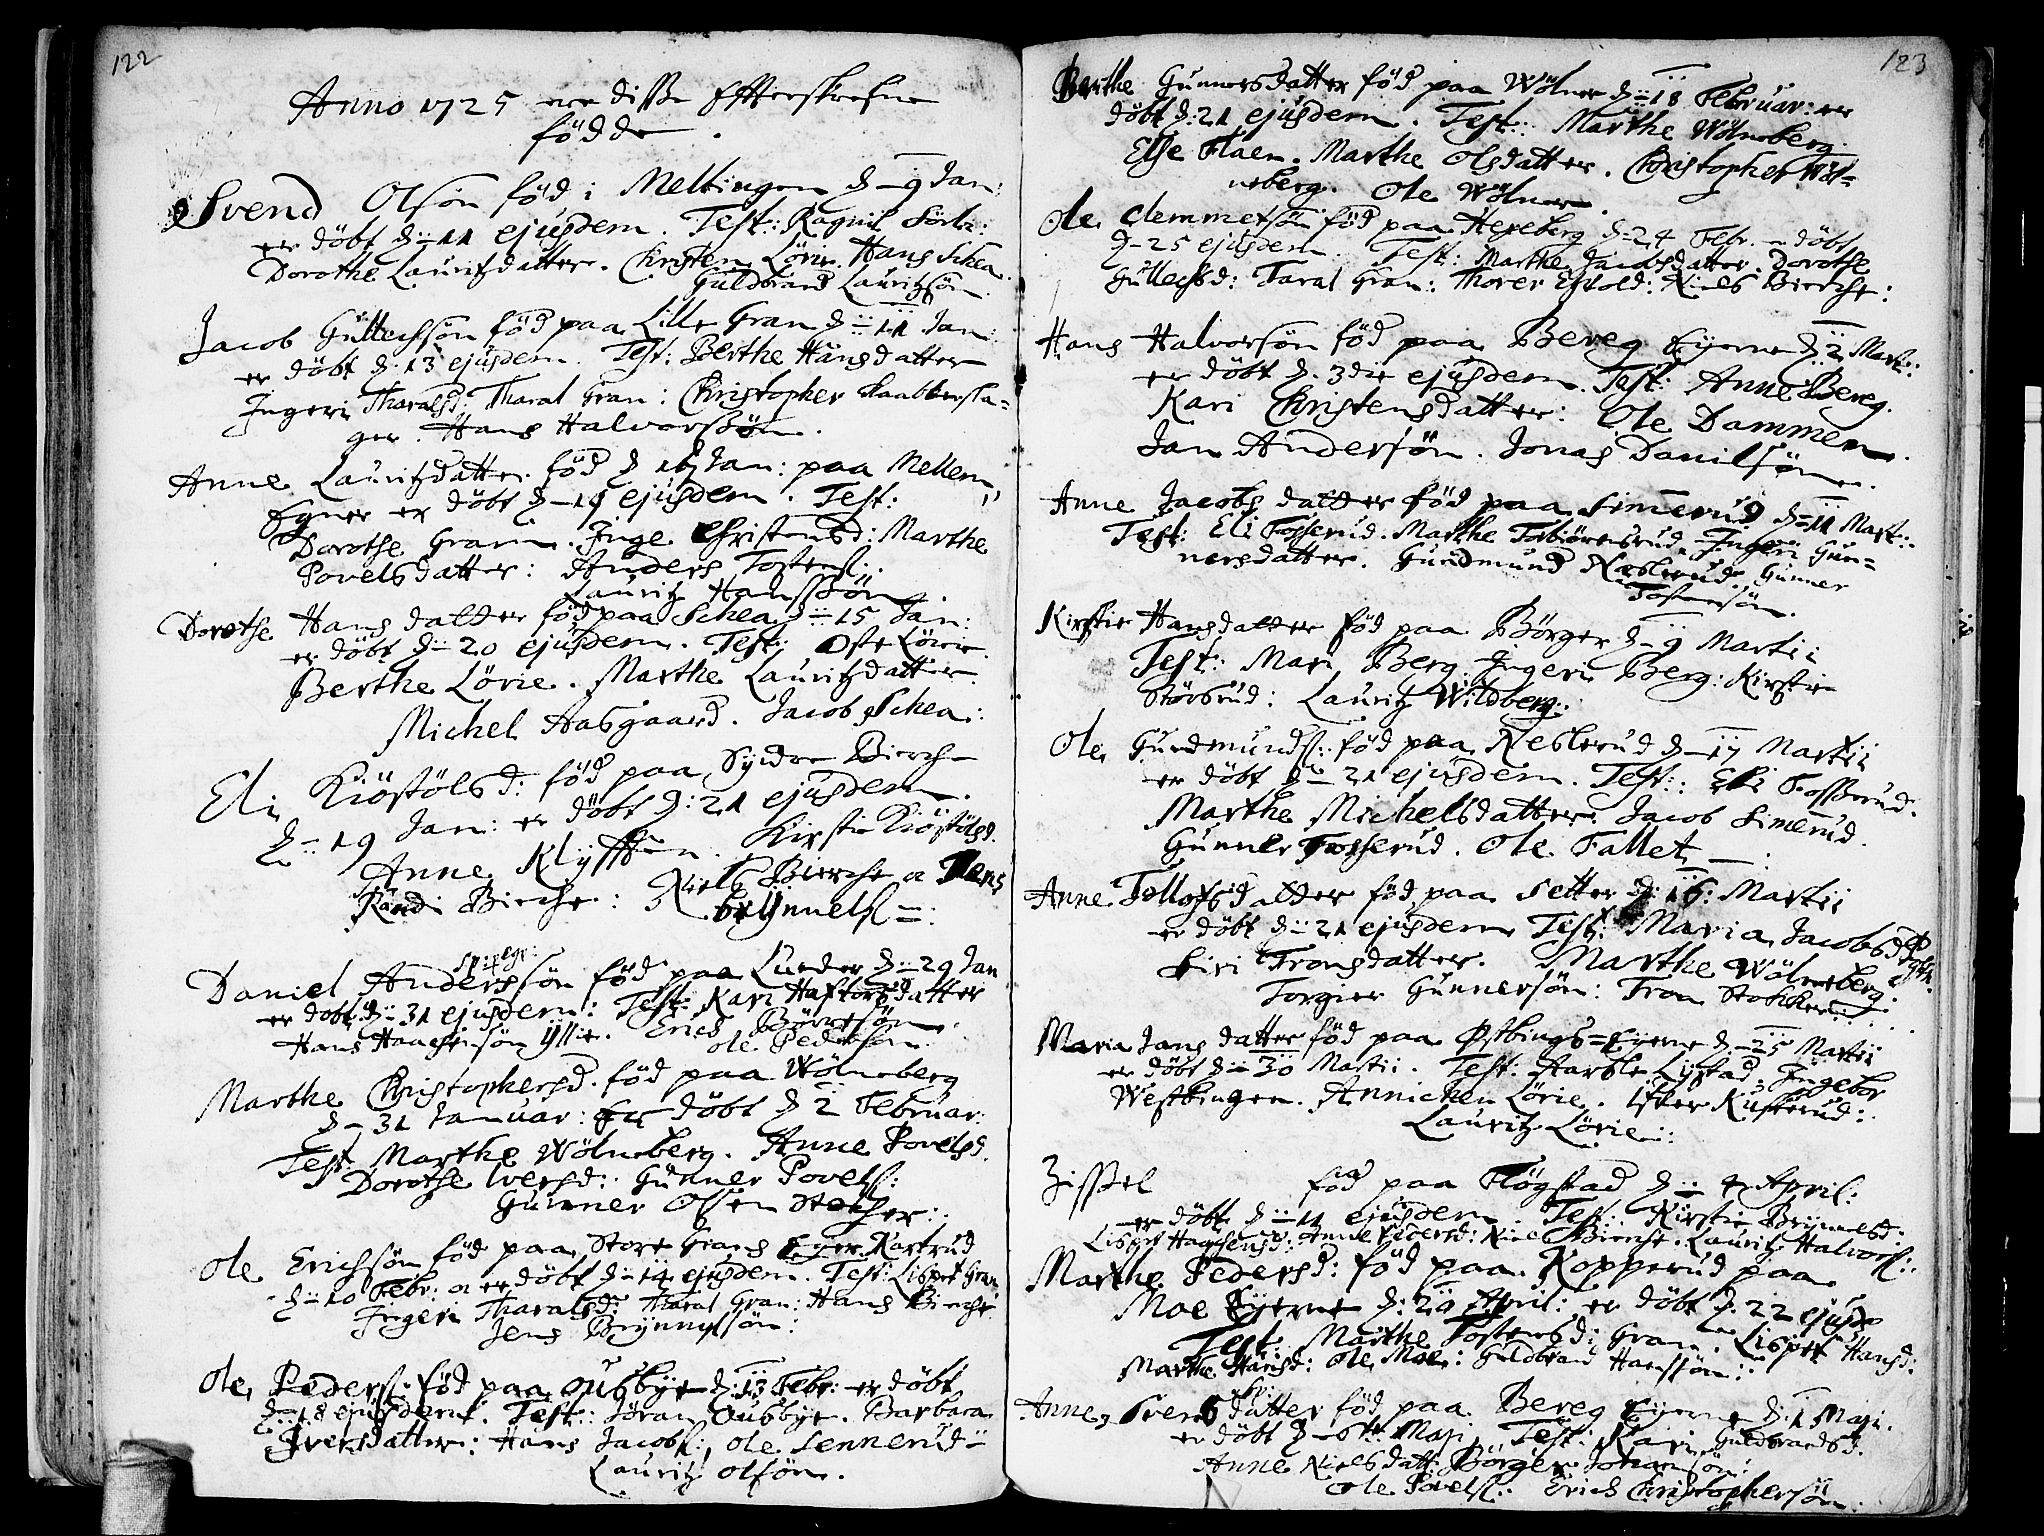 122
Anno 1725 ere disse Effterskrefne
födde.
Svend Olsön föd i Meltingen d. 9 Jan:
er döbt d: 11 ejusdem. Test: Ragnil Sörli:
Dorothe Lauritzdatter. Christen Lörie. Hans Schea
Guldbrand Lauritzsön.
Jacob Gullechsön föd paa Lille Gran d: 11 Jan:
er döbt d. 13 ejusdem. Test: Berthe Hansdatter
Ingeri Tharalsd: Tharal Gran: Christopher
ger. Hans Halvorssön.
Anne Lauritzdatter föd d 16 Jan: paa Mellem
Egner er döbt d 19 ejusdem. Test:
Dorothe Gran. Inge Christensd: Marthe
Povelsdatter: Anders Tostens:
Lauritz Hanssön
Dorothe Hansdatter föd paa Schea d: 15 Jan:
er döbt d: 20 ejusdem. Test: Oste Lörie
Berthe Lörie. Marthe Lauritzdatter
Michel Aasgaard. Jacob Schea:
Eli Kiöstölsd: föd paa Syndre Bierche
d: 19 Jan: er döbt d: 21 ejusdem.
Anne Klyfften. Kirstie Kiöstölsd.
Randi Bierche: Niels Bierche a Jens
Brÿnnels:
Daniel Anderssön föd paa Lunder d: 29 Jan
er döbt d: 31 ejusdem: Test: Kari Haftorsdatter
Hans Haagensön Yllie. Erich Börresön
Ole Pedersön.
Marthe Christophersd. föd paa Wölneberg
d. 31 Januar: Er döbt d 2 Februar:
Test: Marthe Wölneberg. Anne Povelsd.
Dorothe Iversd: Gunner Povels:
Gunner Olsen Stocher:
Ole Erichsön föd paa Store Grans Eger Kastrud
d: 10 Febr: a er döbt d: 14 ejusdem. Test: Lisbet Gran
Ingeri Tharalsd: Tharal Gran: Hans Bierche
Jens Brynnelsön:
Ole Peders: föd paa Ousbye d: 13 Febr: er döbt
d: 18 ejusdem. Test: Jöran Ousbye. Barbara
Iversdatter: Hans Jacobs: Ole Sennerud
Lauritz Olsön.
123
Berthe Gunnersdatter föd paa Wölner d: 18 Februar: er
döbt d: 21 ejusdem. Test: Marthe Wölneberg.
Else Flaen. Marthe Olsdatter. Christopher Wöl=
neberg. Ole Wölner.
Ole Clemmetsön föd paa Hexeberg d: 24 Febr. er döbt
d: 25 ejusdem. Test: Marthe Jacobsdatter. Dorothe
Gullechsd: Taral Gran: Thorer Eswold: Niels Bierche:
Hans Halvorsön föd paa Bereg Eyerne d: 2 Marti:
er döbt d. 3die ejusdem. Test: Anne Bereg.
Kari Christensdatter: Ole Dammen
Jan Andersön. Jonas Danilsön.
Anne Jacobsdatter föd paa Simerud d: 11 Marti:
Test: Eli Fosserud. Marthe Torbiörensrud. Ingeri Gun=
nersdatter. Gundmund Næsterud. Gunner
Tostensön.
Kirstie Hansdatter föd paa Börger d: 9 Martii
Test: Mari Berg. Ingeri Berg: Kirstie
Störsrud: Lauritz Wildberg:
Ole Gundmunds: föd paa Nesterud d: 17 Martii
er döbt d: 21 ejusdem. Test: Eli Fosserud.
Marthe Michelsdatter. Jacob Simerud.
Gunner Fosserud. Ole Fallet.
Anne Tollofsdatter föd paa Setter d: 16: Martii
er döbt d: 21 ejusdem Test: Maria Jacobsd
Siri Tronsdatter. Marthe Wölneberg.
Torgier Gunnersön: Tron Stokker:
Maria Jansdatter föd paa Østbings=Eyerne d: 25 Martii
er döbt d: 30 Martii. Test: Lystad. Ingebor
Westbingen. Annichen Lörie. Kusserud:
Lauritz Lörie:
Zissel föd paa Flögstad d: 4 April:
er döbt d: 11 ejusdem. Test: Kirstie Brynnelsd:
Lisbet Haagensd: Anne Pedersd: Niels Bierche. Lauritz Halvors:
Marthe Pedersd: föd paa Kopperud paa
Moe Eyerne d: 20 April: er döbt d: 22 ejusd
Test: Marthe Tostensd: Gran. Lisbet Hansd:
Marthe Hansd: Ole Moe: Guldbrand Hanssön:
Anne Svensdatter föd paa Bereg Eyerne d: 1 Maji.
er döbt d 6te Maji. Test: Kari Guldbrandsd.
Anne Nielsdatt: Börger Johansön:
Ole Povels: Erich Christophersön.